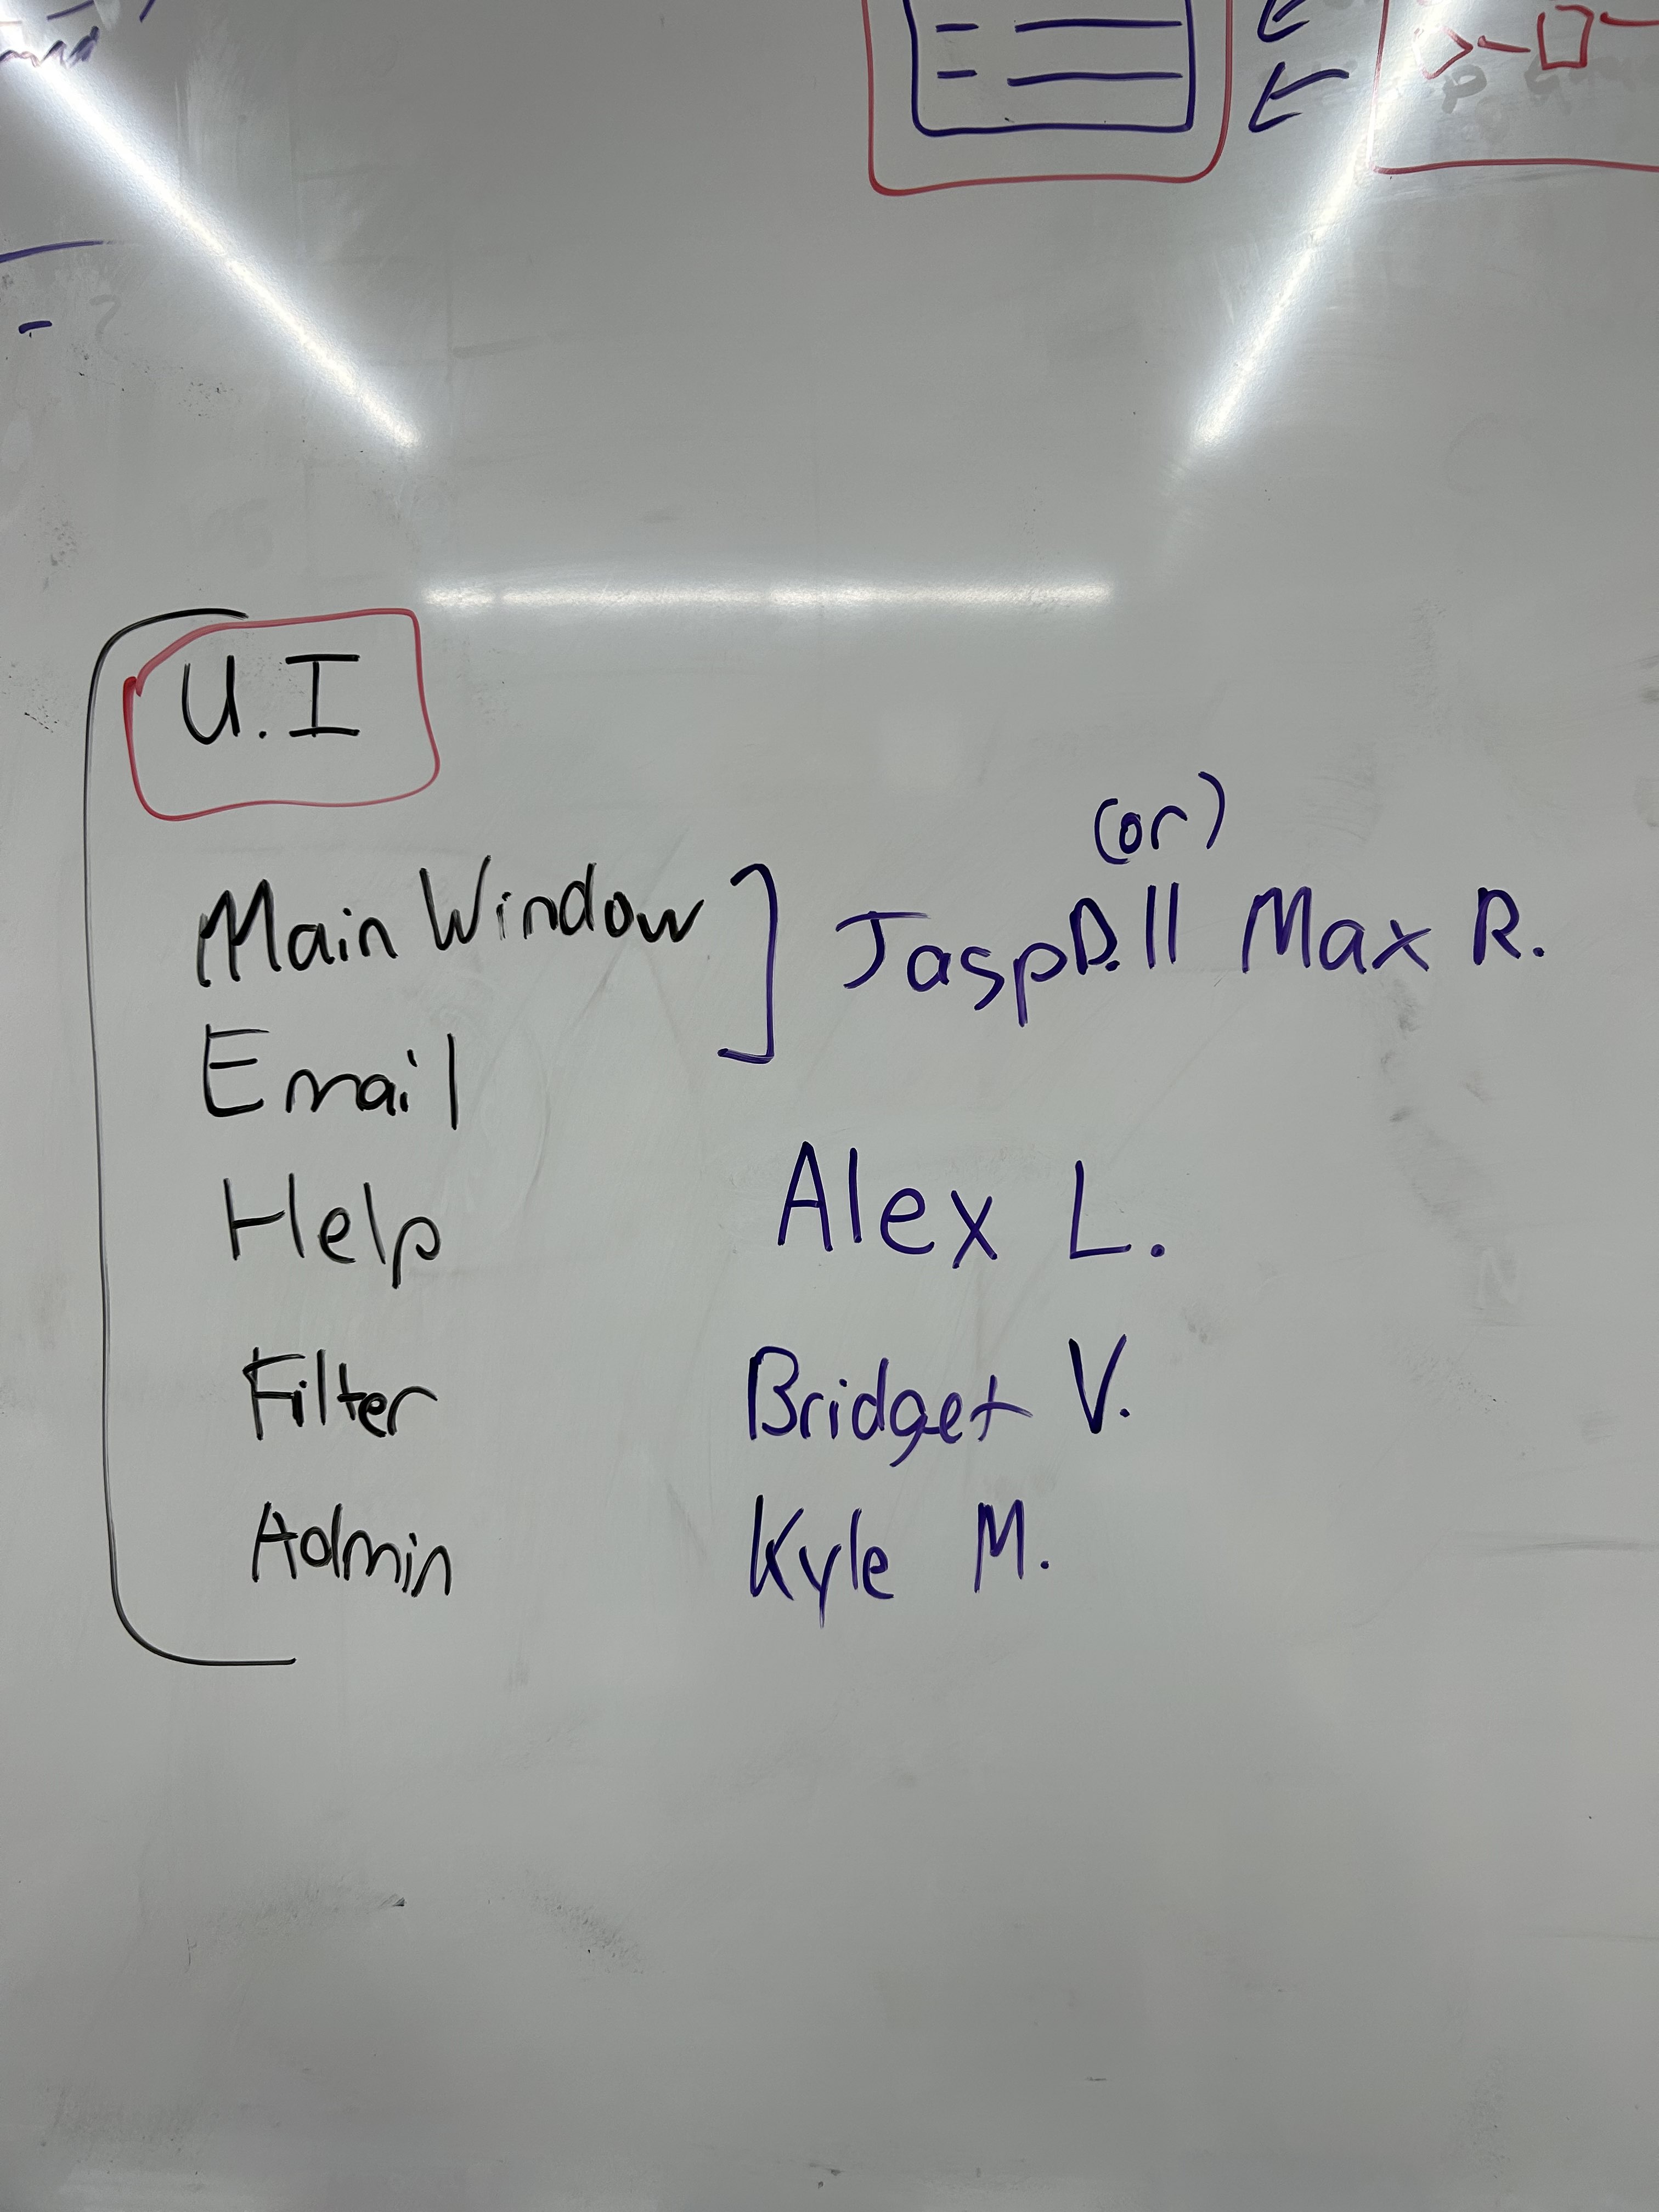 U.I
(or)
Main Window ] Jasp D. || Max R.
Email
Help Alex L.
Filter Bridget V.
Admin Kyle M.